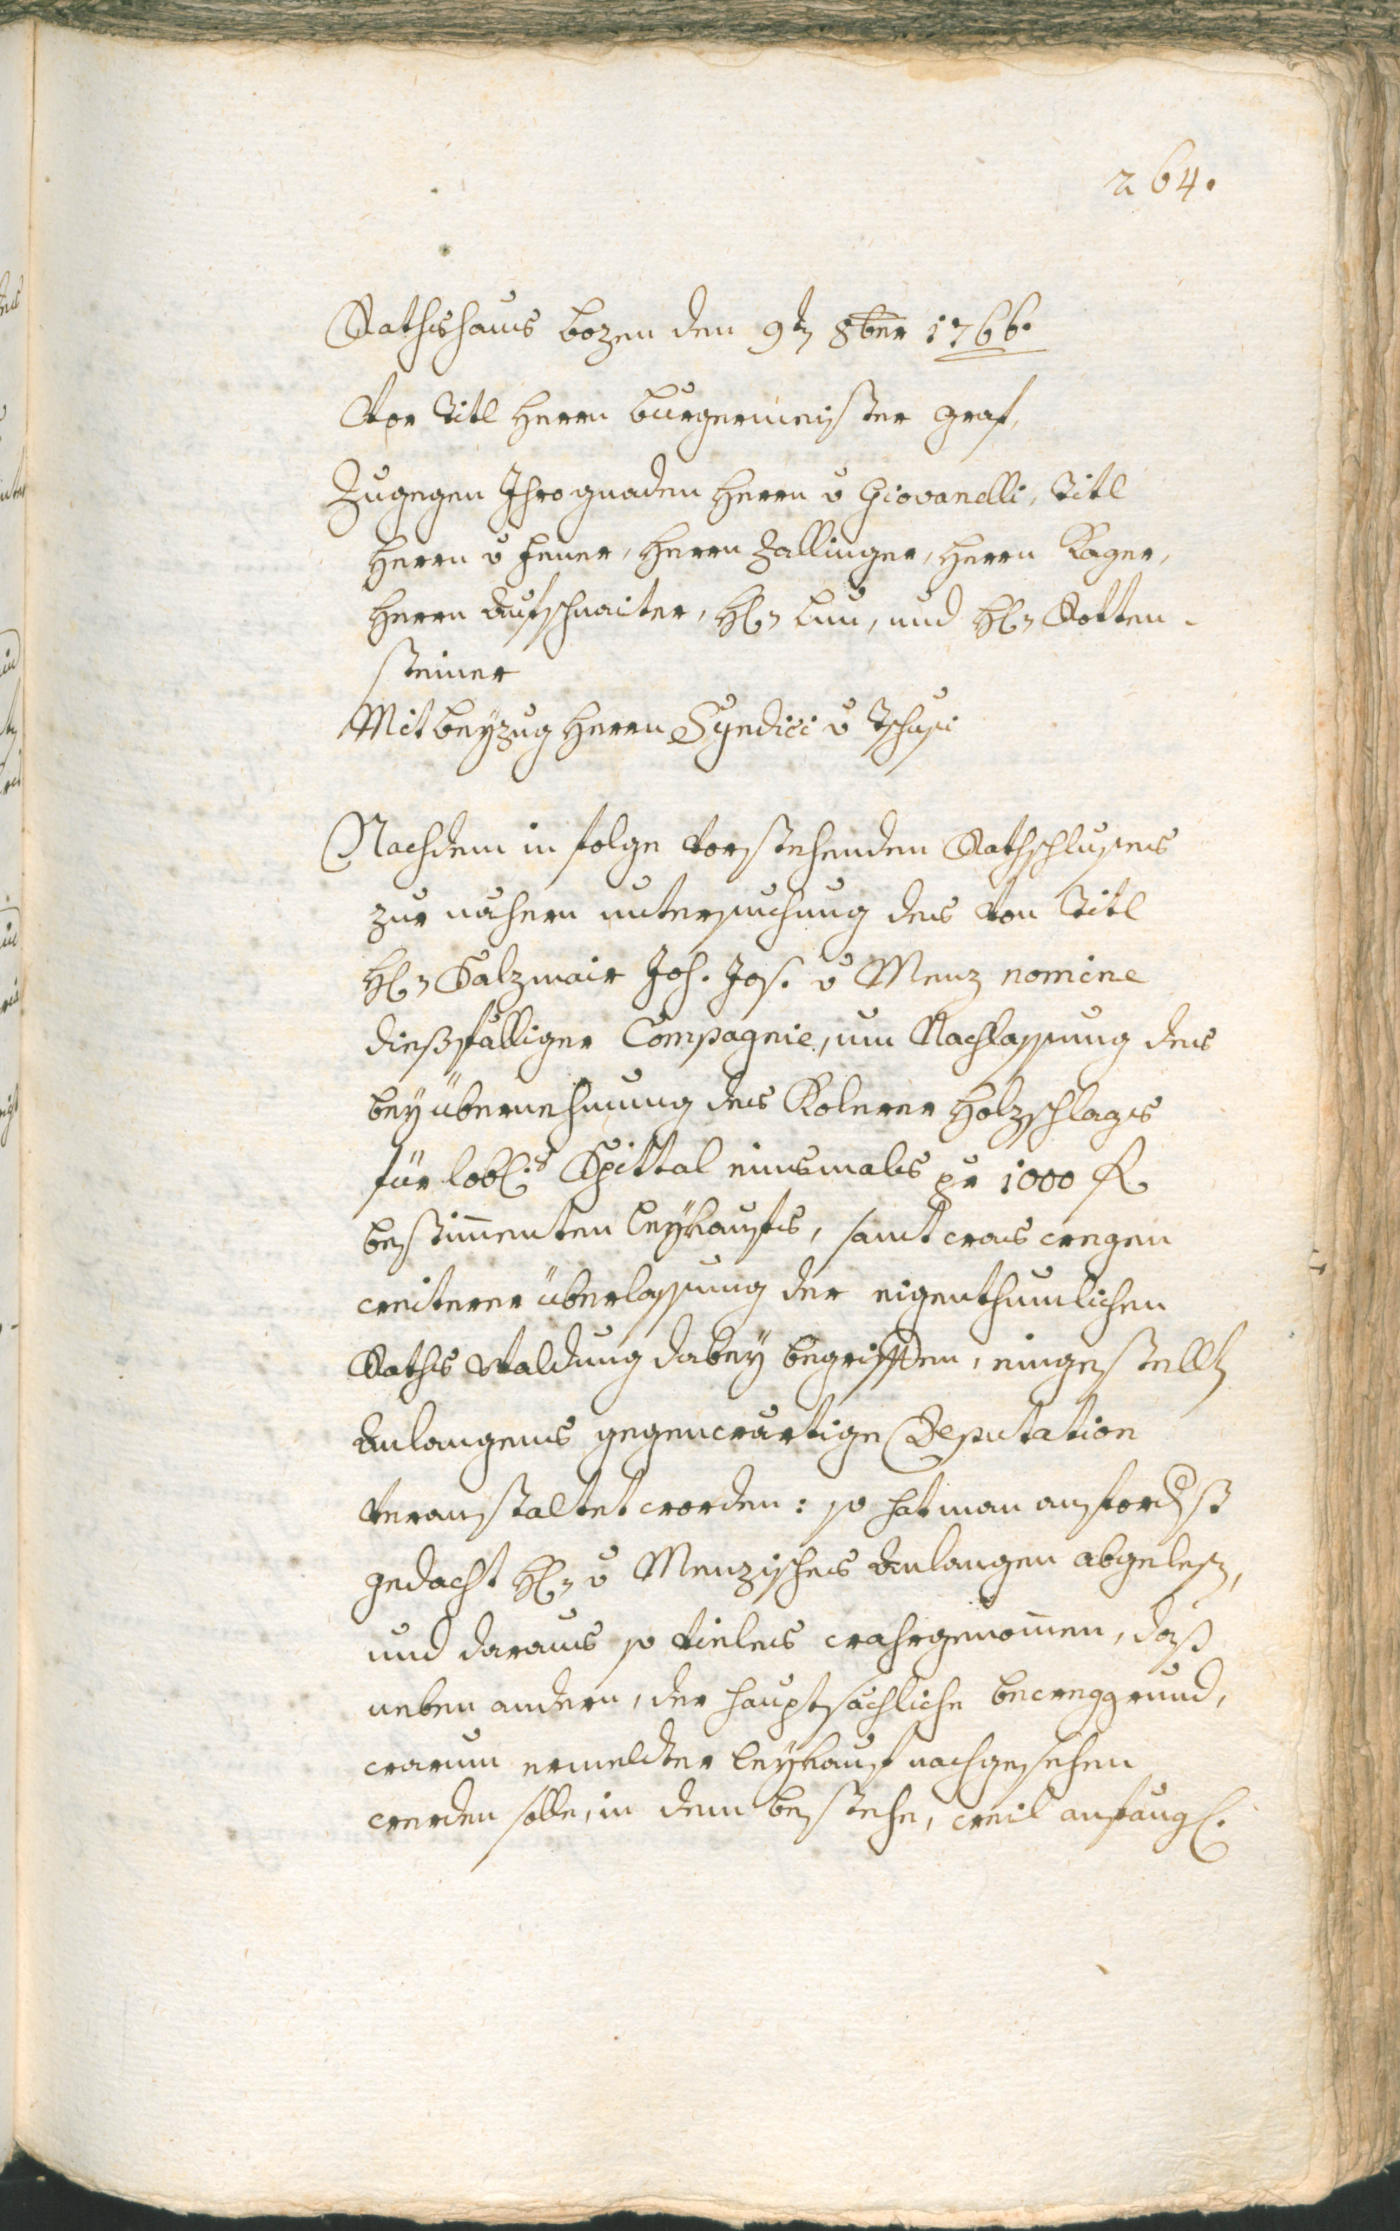 264.
Rathshaus Bozen den 9t 8ber 1766.
Vor Titl Herrn Burgermeister Graf,
Zugegen Ihro gnaden Herrn v Giovanelli, Titl
Herrn v Hener, Herrn Zallinger, Herrn Kager,
Herrn Aufschnaiter, H: Lun, und H: Rotten-
steiner
Mit beyzug Herrn Syndici v Tschusi
Nachdem in folge vorstehenden Rathschlusses
zur nähern untersuchung des von Titl
H: Salzmair Joh. Jos. v Menz nomine
dießfälliger Compagnie, um Nachlassung des
bey übernehmung des Kolerer Holzschlags
für löbl: Spittal einsmals pr 1000 f
bestimmenten leykaufs, samt was wegen
weiterer überlassung der eigenthumlichen
Raths Waldung dabey begriffen, eingestellt
Anlangens gegenwärtige Deputation
veranstaltet worden: so hat man anforderst
gedacht H: v Menzisches Anlangen abgelesen,
und daraus so vieles wahrgenommen, daß
neben andern, der hauptsächliche beweggrund,
warum ermeldter leykauf nachgesehen
werden solle, in dem bestehe, weil anfängl.